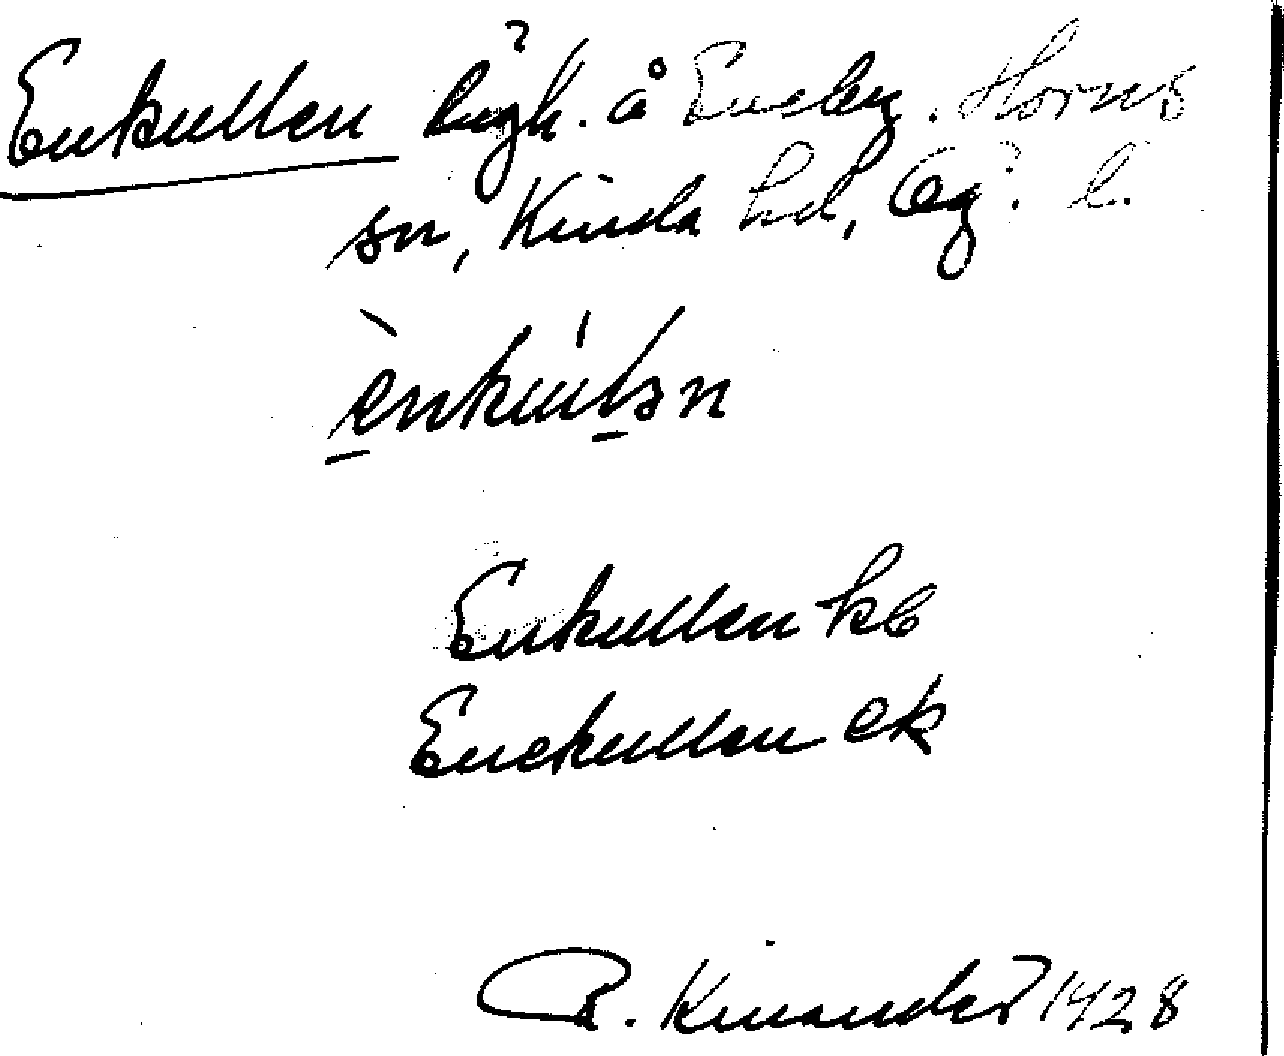 Enkullen lägh. å Eneby. Horns
sn, Kinda hd, Ög. l.
ènkúlən
Enkullen kb
Enekullen ek
R. Kinander 1928